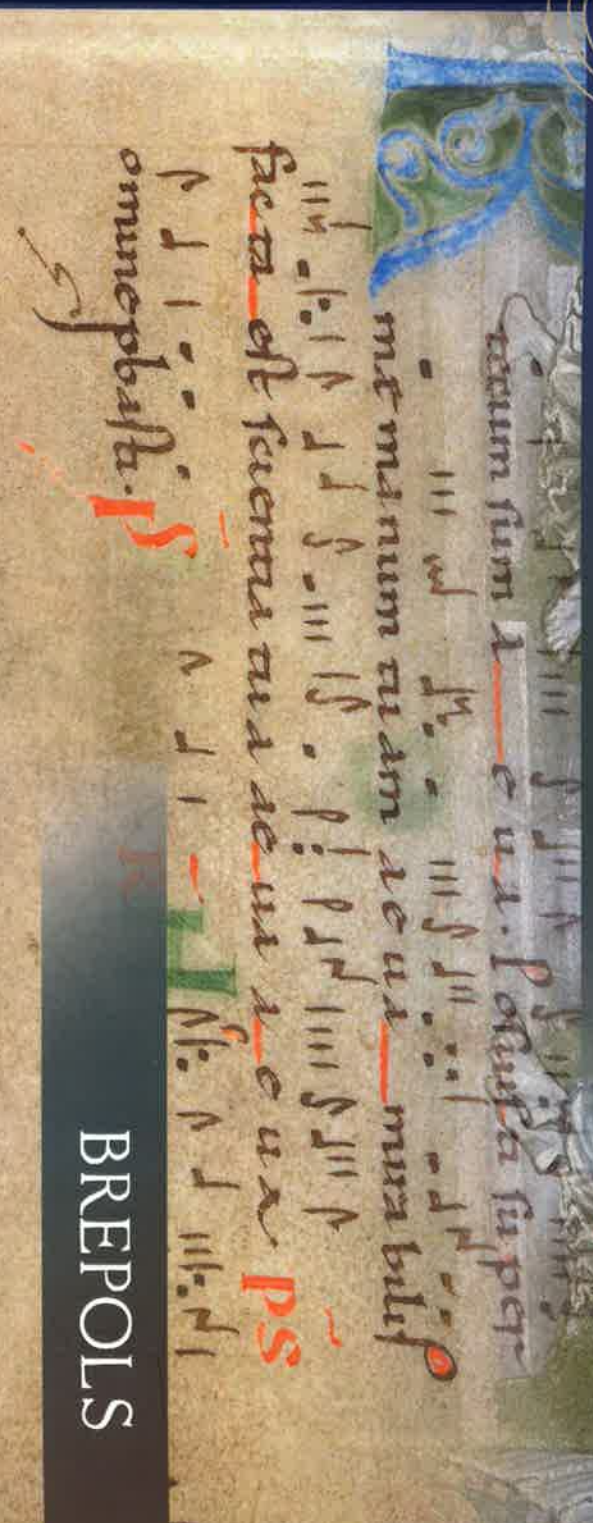 tecum sum a e u a. Posuisti super
me manum tuam aeua mirabilis
facta est scientia tua aeua a e u a PS
omine pbasti. PS R
BREPOLS